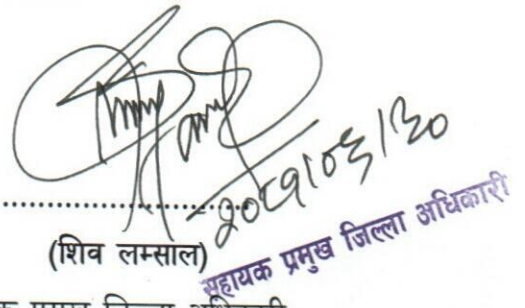 (शिव लम्साल)
सहायक प्रमुख जिल्ला अधिकारी
प्रमुख जिल्ला अधिकारी